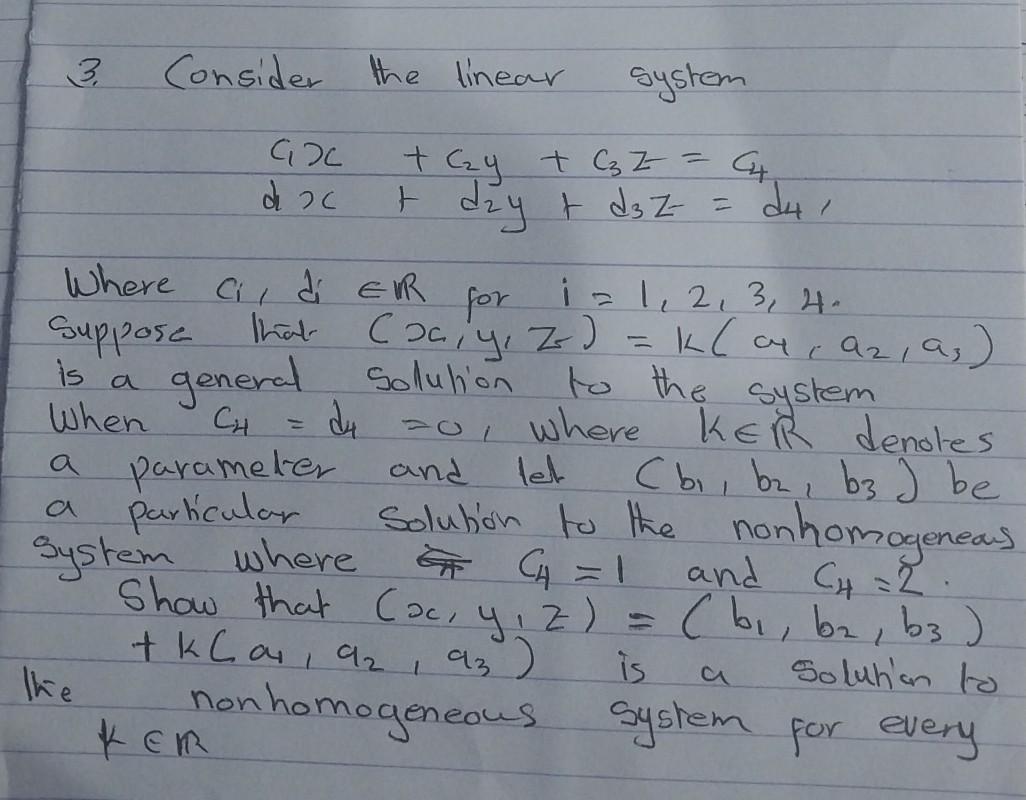 3. Consider the linear system
c₁x + c₂y + c₃z = c₄
dx + d₂y + d₃z = d₄,
Where cᵢ, dᵢ ∈ ℝ for i = 1, 2, 3, 4.
Suppose that (x, y, z) = k(a₁, a₂, a₃)
is a general solution to the system
When c₄ = d₄ = 0, where k ∈ ℝ denotes
a parameter and let (b₁, b₂, b₃) be
a particular solution to the nonhomogeneous
system where c₄ = 1 and c₄ = 2.
Show that (x, y, z) = (b₁, b₂, b₃)
+ k(a₁, a₂, a₃) is a solution to
the nonhomogeneous system for every
k ∈ ℝ